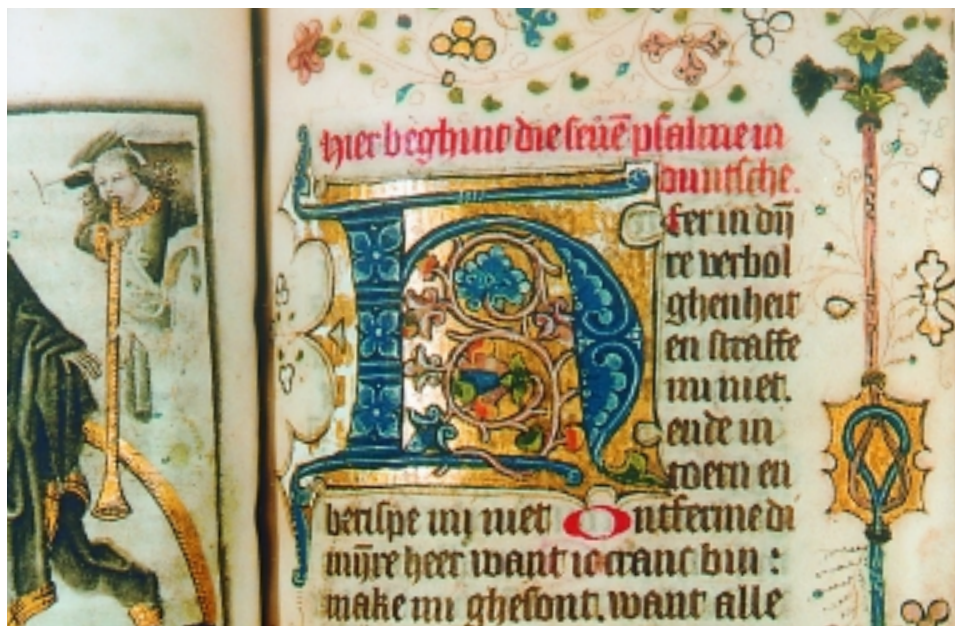 hier beghint die seuē psalme in
duutsche.
H
eer in dijn
re verbol
ghenheit
en straffe
mi niet.
ende in
toern en
berispe mi niet Ontferme di
mijnre heer want ic cranc bin :
make mi ghesont. want alle
78